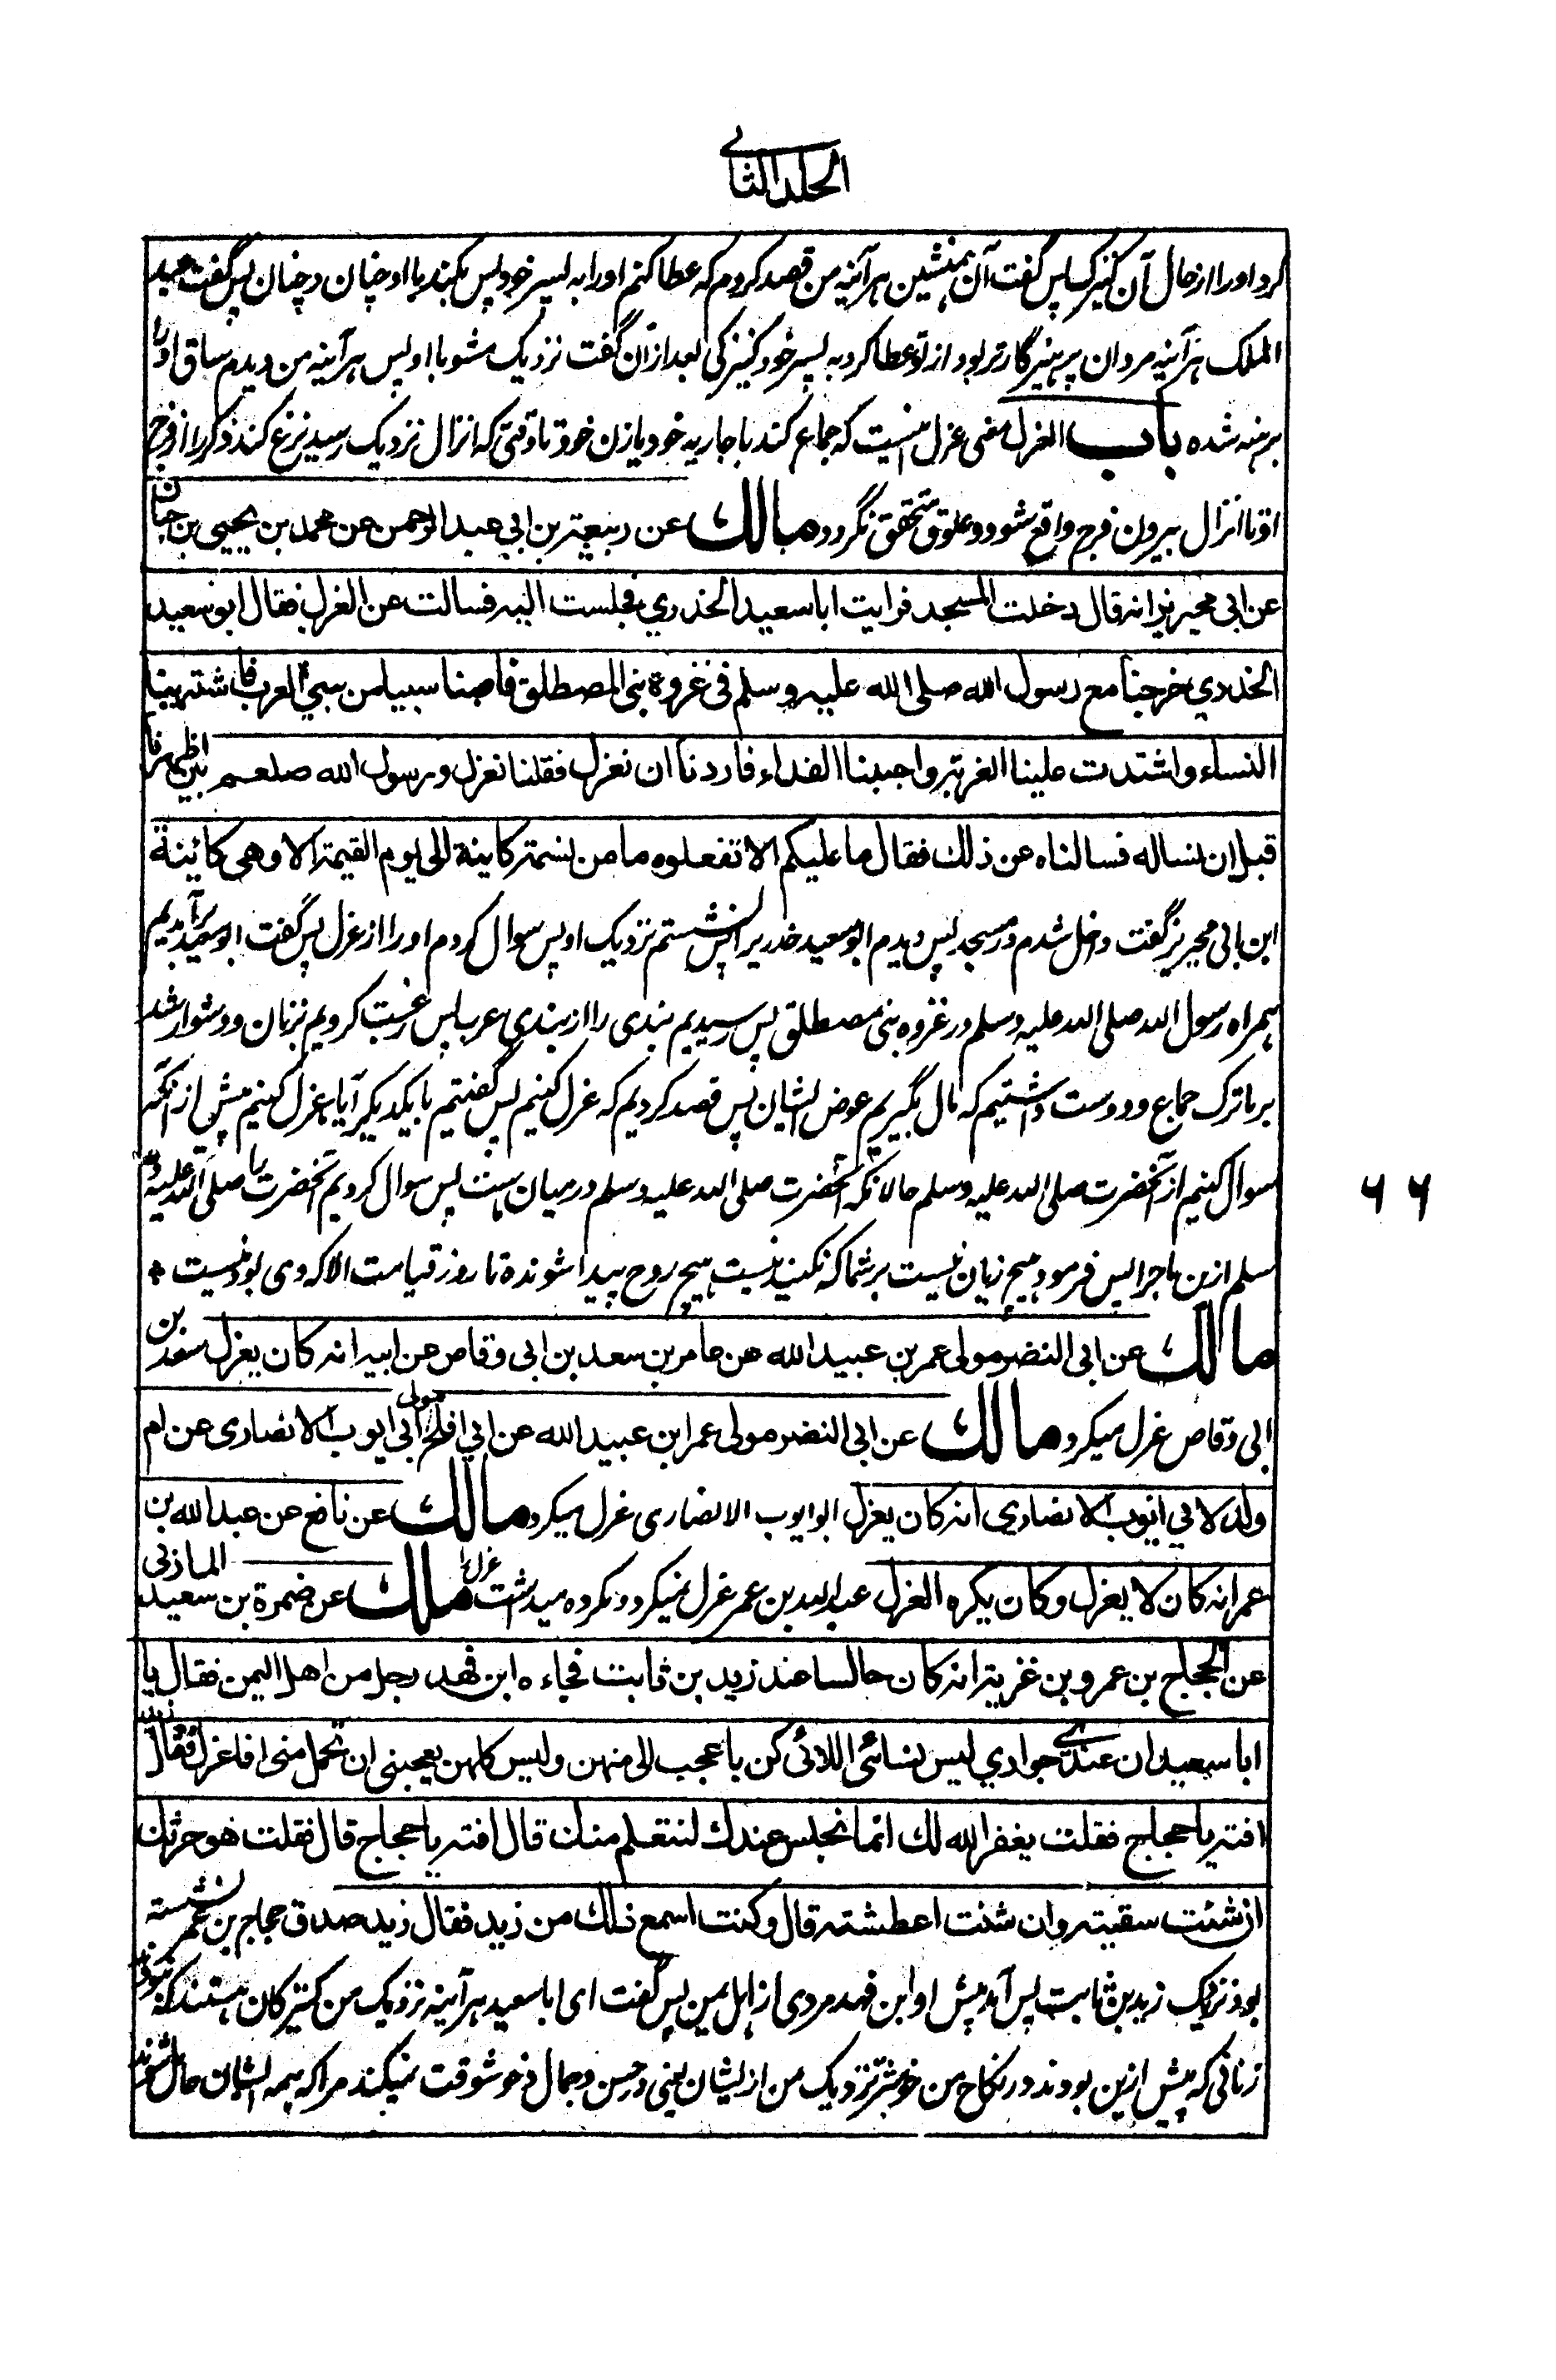 الجلد الثانی
کرد اورا از حال آن کنیزک پس گفت آن همنشین هر آئینه من قصد کردم که عطا کنم اورا به پسر خود پس بکند با او چنان و چنان پس گفت عبد
الملک هر آئینه مروان پرهیزگارتر بود از تو عطا کرد به پسر خود کنیزکی بعد ازان گفت نزدیک مشو با او پس هر آئینه من دیدم ساق اورا
برهنه شده باب العزل معنی عزل اینست که جماع کند با جاریه خود یا زن خود تا وقتی که انزال نزدیک رسید نزع کند ذکر را از فرج
او تا انزال بیرون فرج واقع شود و علوق متحقق نگردد مالك عن ربيعة بن ابي عبد الرحمن عن محمد بن يحيى بن حبان
عن ابی محیریز انه قال دخلت المسجد فرایت ابا سعید الخدري فجلست الیه فسالت عن العزل فقال ابو سعید
الخدري خرجنا مع رسول الله صلی الله علیه وسلم فی غزوة بنی المصطلق فاصبنا سبیا من سبي العرب فاشتهینا
النساء واشتدت علینا العزبة واحببنا الفداء فاردنا ان نعزل فقلنا نعزل و رسول الله صلعم بین اظهرنا
قبل ان نساله فسالناه عن ذلك فقال ما علیکم الا تفعلوه ما من نسمة کاینة الی یوم القیمة الا وهی کائنة
ابن ابی محیریز گفت داخل شدم در مسجد پس دیدم ابو سعید خدری را پس نشستم نزدیک او پس سوال کردم اورا از عزل پس گفت ابو سعید بر آمدیم
همراه رسول الله صلی الله علیه وسلم در غزوه بنی مصطلق پس رسیدیم بندی را از بندی عرب پس رغبت کردیم بزنان و دشوار شد
بر ما ترک جماع و دوست داشتیم که مال بگیریم عوض ایشان پس قصد کردیم که عزل کنیم پس گفتیم با یکدیگر آیا عزل کنیم پیش از انکه
سوال کنیم از آنحضرت صلی الله علیه وسلم حالانکه آنحضرت صلی الله علیه وسلم درمیان ماست پس سوال کردیم آنحضرت را صلی الله علیه و
سلم ازین ماجرا پس فرمود هیچ زیان نیست بر شما که نکنید نیست هیچ روح پیدا شونده تا روز قیامت الا که وی بودنیست *
۶۶
مالك عن ابی النضر مولی عمر بن عبید الله عن عامر بن سعد بن ابی وقاص عن ابیه انه کان یعزل سعد بن
ابی وقاص عزل میکرد مالك عن ابی النضر مولی عمر ابن عبید الله عن ابي افلح مولی ابي ایوب الانصاری عن ام
ولد لابي ایوب الانصاري انه کان یعزل ابو ایوب الانصاری عزل میکرد مالك عن نافع عن عبد الله بن
عمر انه کان لا یعزل وکان یکره العزل عبد الله بن عمر عزل نمیکرد و مکروه میداشت عزل را مالك عن ضمرة بن سعید المازنی
عن الحجاج بن عمرو بن غزیة انه کان جالسا عند زید بن ثابت فجاءه ابن فهد رجل من اهل الیمن فقال یا
ابا سعید ان عندي جواري لیس نسائی اللائی کن باعجب الی منهن ولیس کلهن یعجبنی ان تحمل منی افاعزل فقال زید
افته یا حجاج فقلت یغفر الله لك انما نجلس عندك لنتعلم منك قال افته یا حجاج قال فقلت هو حرثك
ان شئت سقیته وان شئت اعطشته قال وکنت اسمع ذلك من زید فقال زید صدق حجاج بن عمر نشسته
بود نزدیک زید بن ثابت پس آمد پیش او ابن فهد مردی از اهل یمن پس گفت ای ابا سعید هر آئینه نزدیک من کنیزکان هستند که نبودند
زنانی که پیش ازین بودند در نکاح من خوشتر نزدیک من ازیشان یعنی در حسن و جمال و خوشوقت نمیکند مرا که همه ایشان حامل شوند